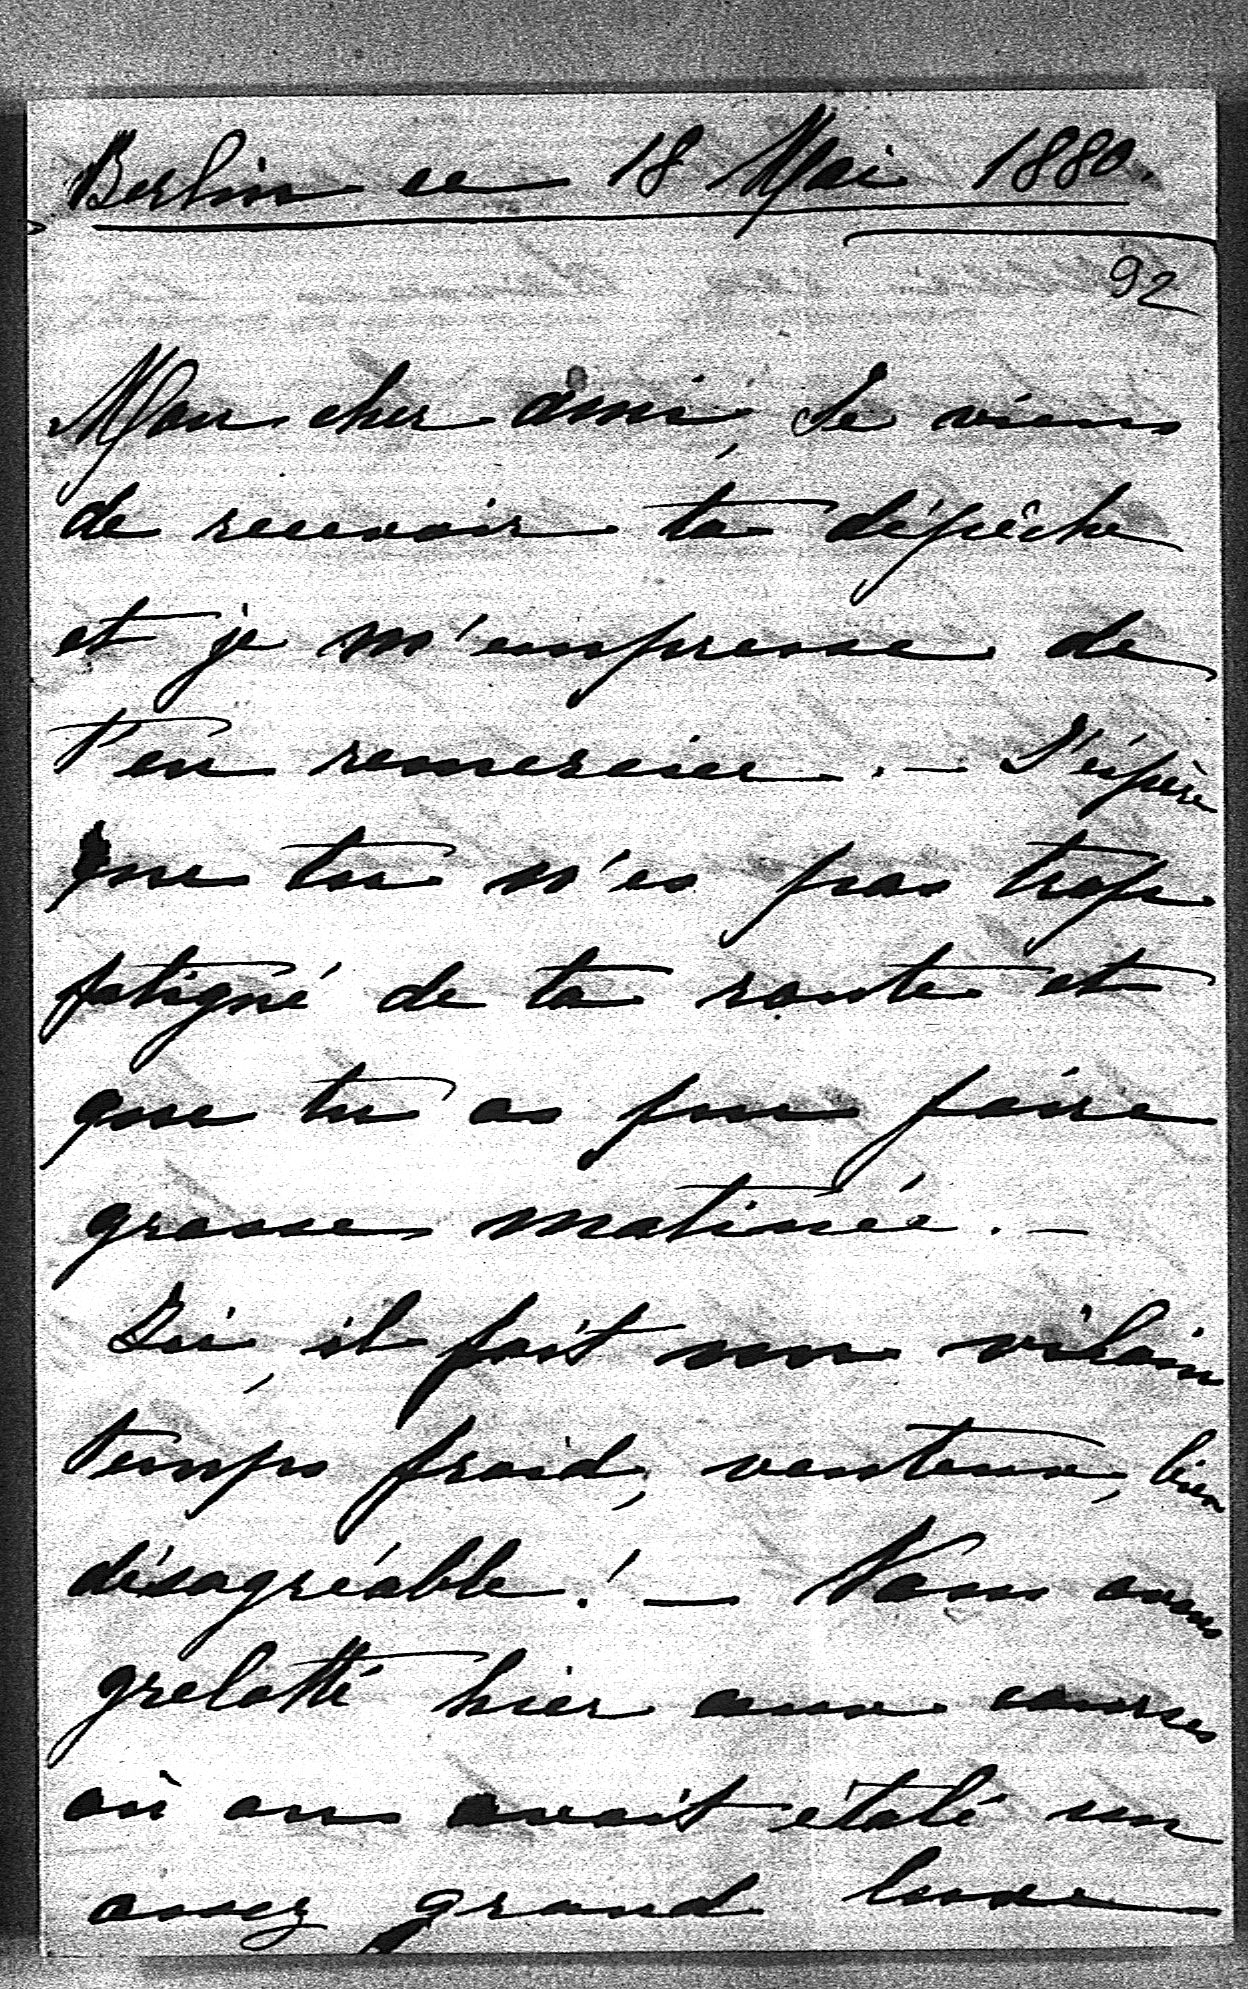 Berlin ce 18 Mai 1880.
92
Mon cher ami, Je viens
de recevoir ta dépêche
et je m'empresse de
t'en remercier. — J'éspère
que tu n'es pas trop
fatigué de ta route et
que tu as pu faire
grasse matinée. —
Ici, il fait un vilain
temps froid, venteux, bien
désagréable! — Nous avons
grelotté hier aux courses
où on avait étalé un
assez grand luxe